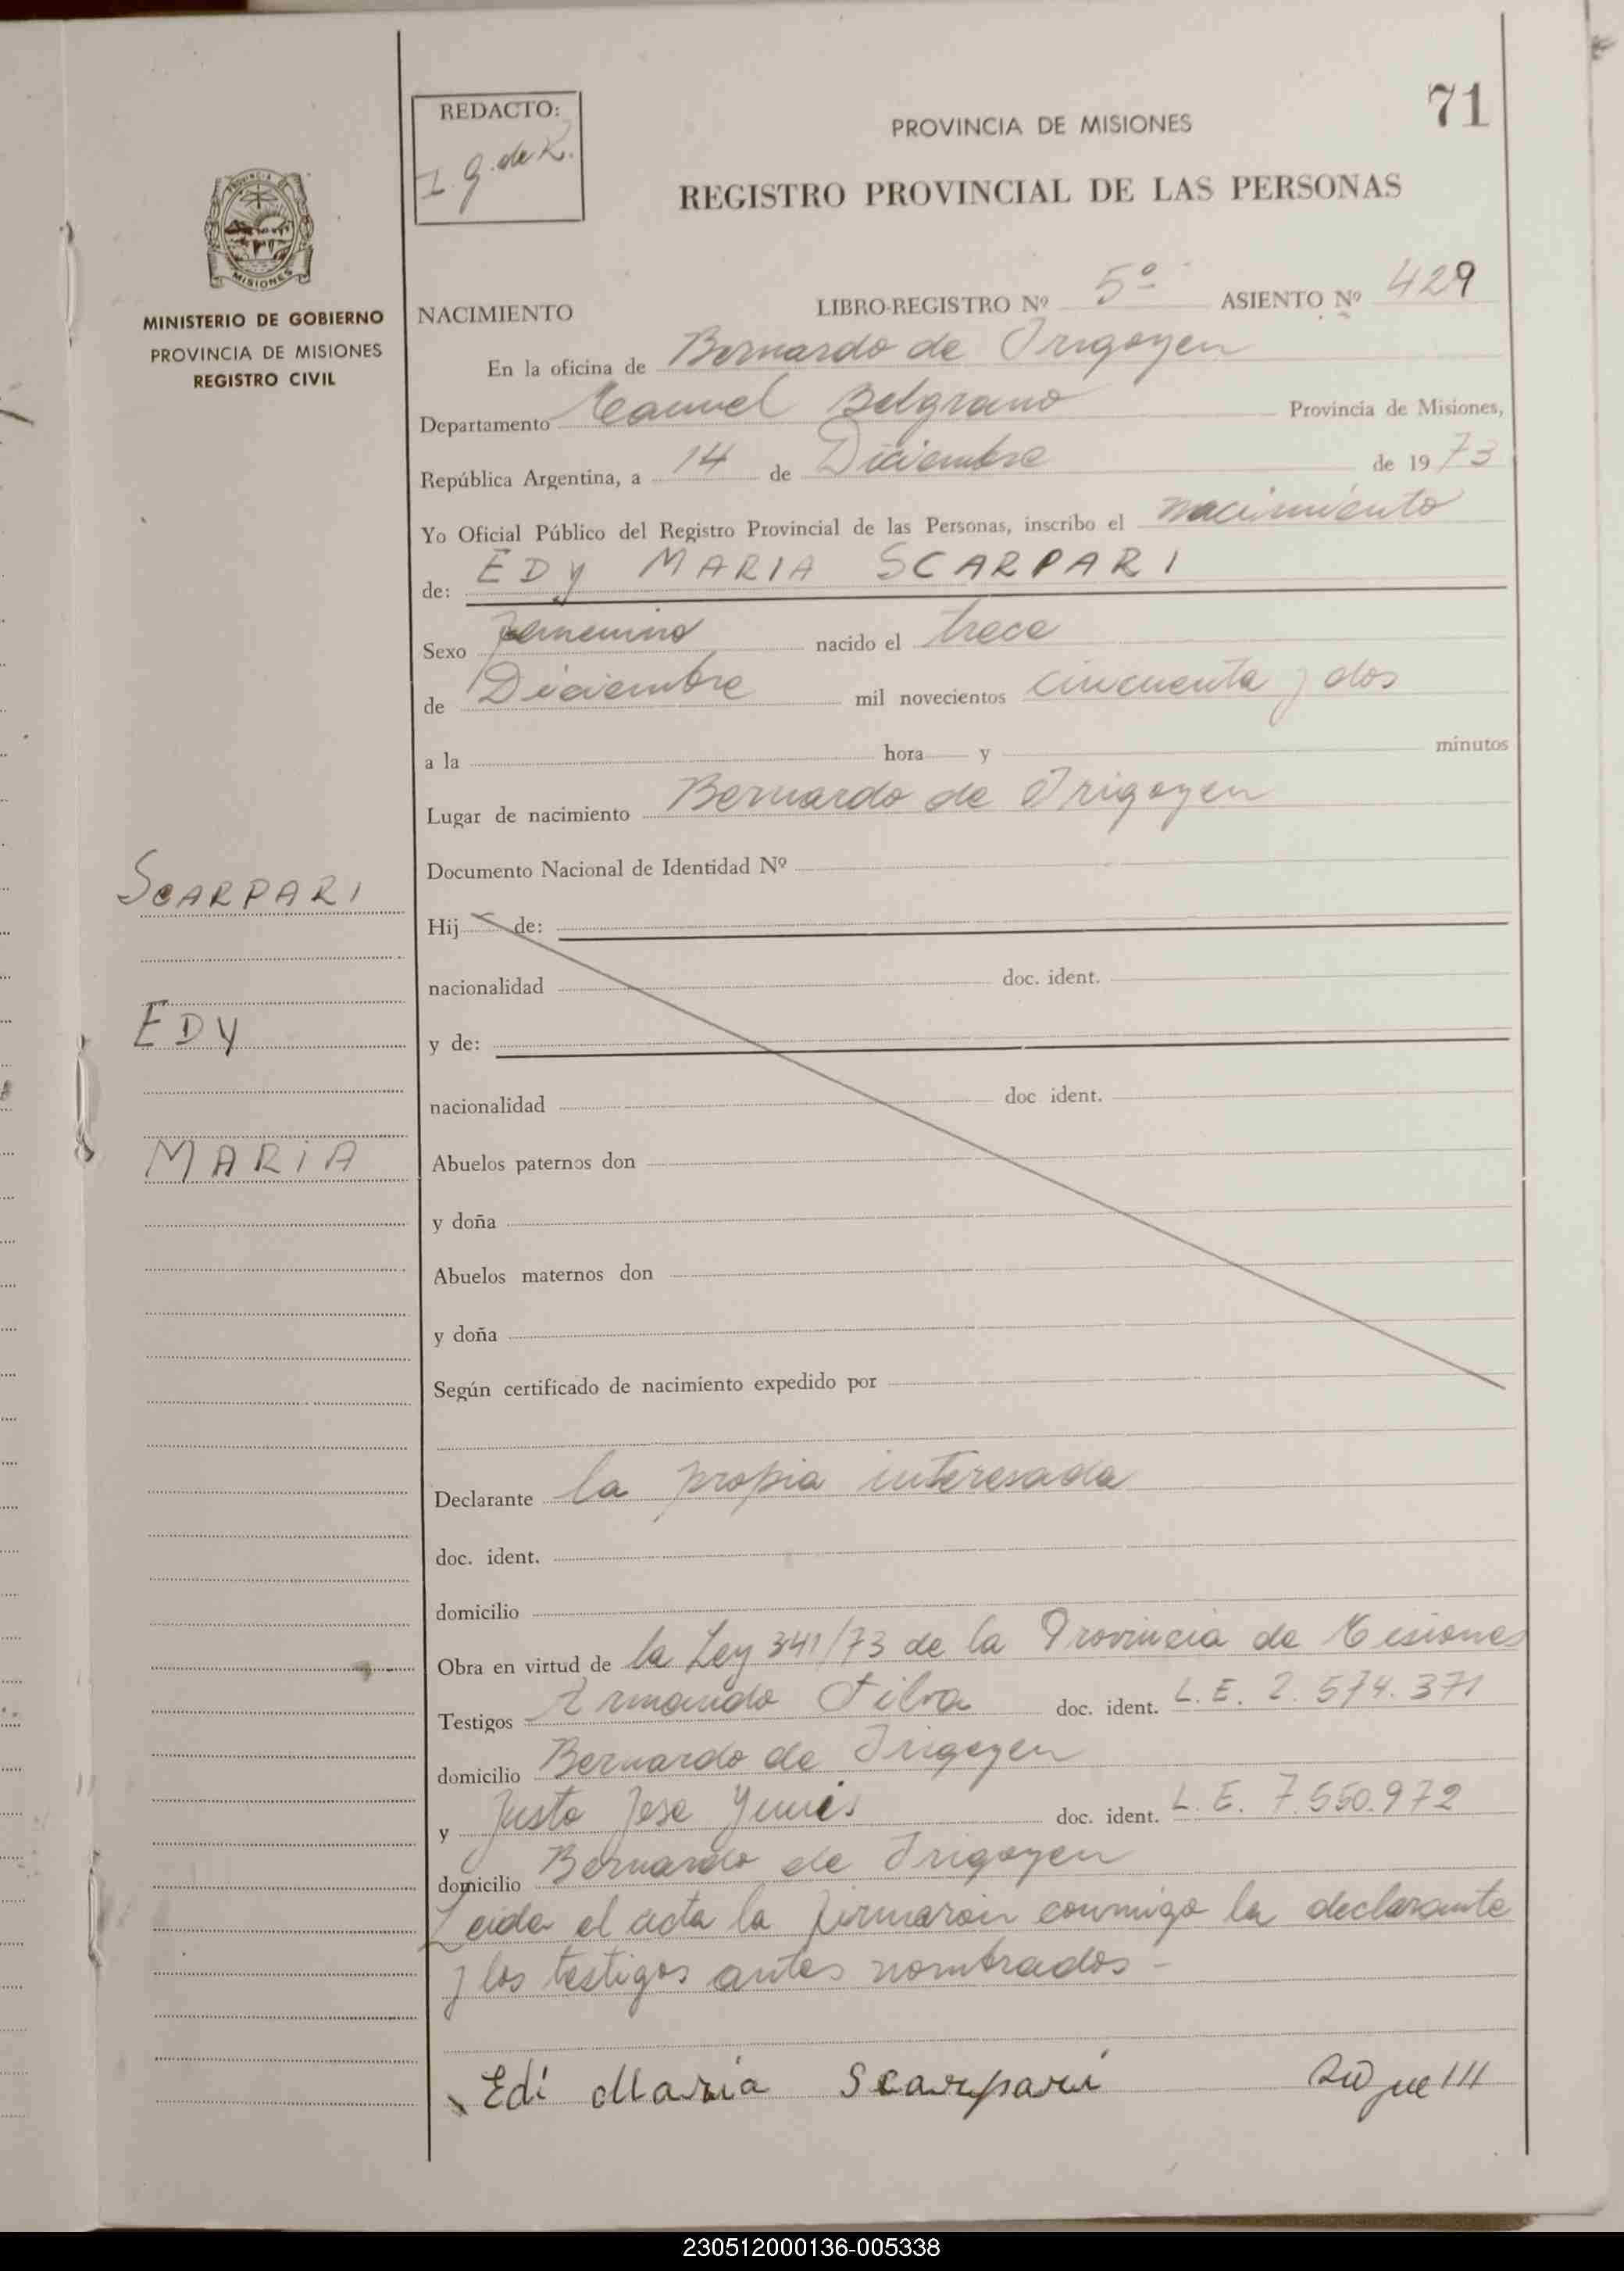 71
REDACTO:
I. G. de K.
PROVINCIA DE MISIONES
REGISTRO PROVINCIAL DE LAS PERSONAS
PROVINCIA DE
MISIONES
MINISTERIO DE GOBIERNO
PROVINCIA DE MISIONES
REGISTRO CIVIL
NACIMIENTO LIBRO-REGISTRO Nº 5º ASIENTO Nº 429
En la oficina de Bernardo de Irigoyen
Departamento Manuel Belgrano Provincia de Misiones,
República Argentina, a 14 de Diciembre de 1973
Yo Oficial Público del Registro Provincial de las Personas, inscribo el nacimiento
de: EDY MARIA SCARPARI
Sexo femenino nacido el trece
de Diciembre mil novecientos cincuenta y dos
a la hora y minutos
Lugar de nacimiento Bernardo de Irigoyen
Documento Nacional de Identidad Nº
SCARPARI
Hij de:
nacionalidad doc. ident.
EDY
y de:
nacionalidad doc ident.
MARIA
Abuelos paternos don
y doña
Abuelos maternos don
y doña
Según certificado de nacimiento expedido por
Declarante la propia interesada
doc. ident.
domicilio
Obra en virtud de la Ley 341/73 de la Provincia de Misiones
Testigos Armando Silva doc. ident. L. E. 2.574.371
domicilio Bernardo de Irigoyen
y Justo Jose Yunis doc. ident. L. E. 7.550.972
domicilio Bernardo de Irigoyen
Leida el acta la firmaron conmigo la declarante
y los testigos antes nombrados -
Edi Maria Scarpari
230512000136-005338